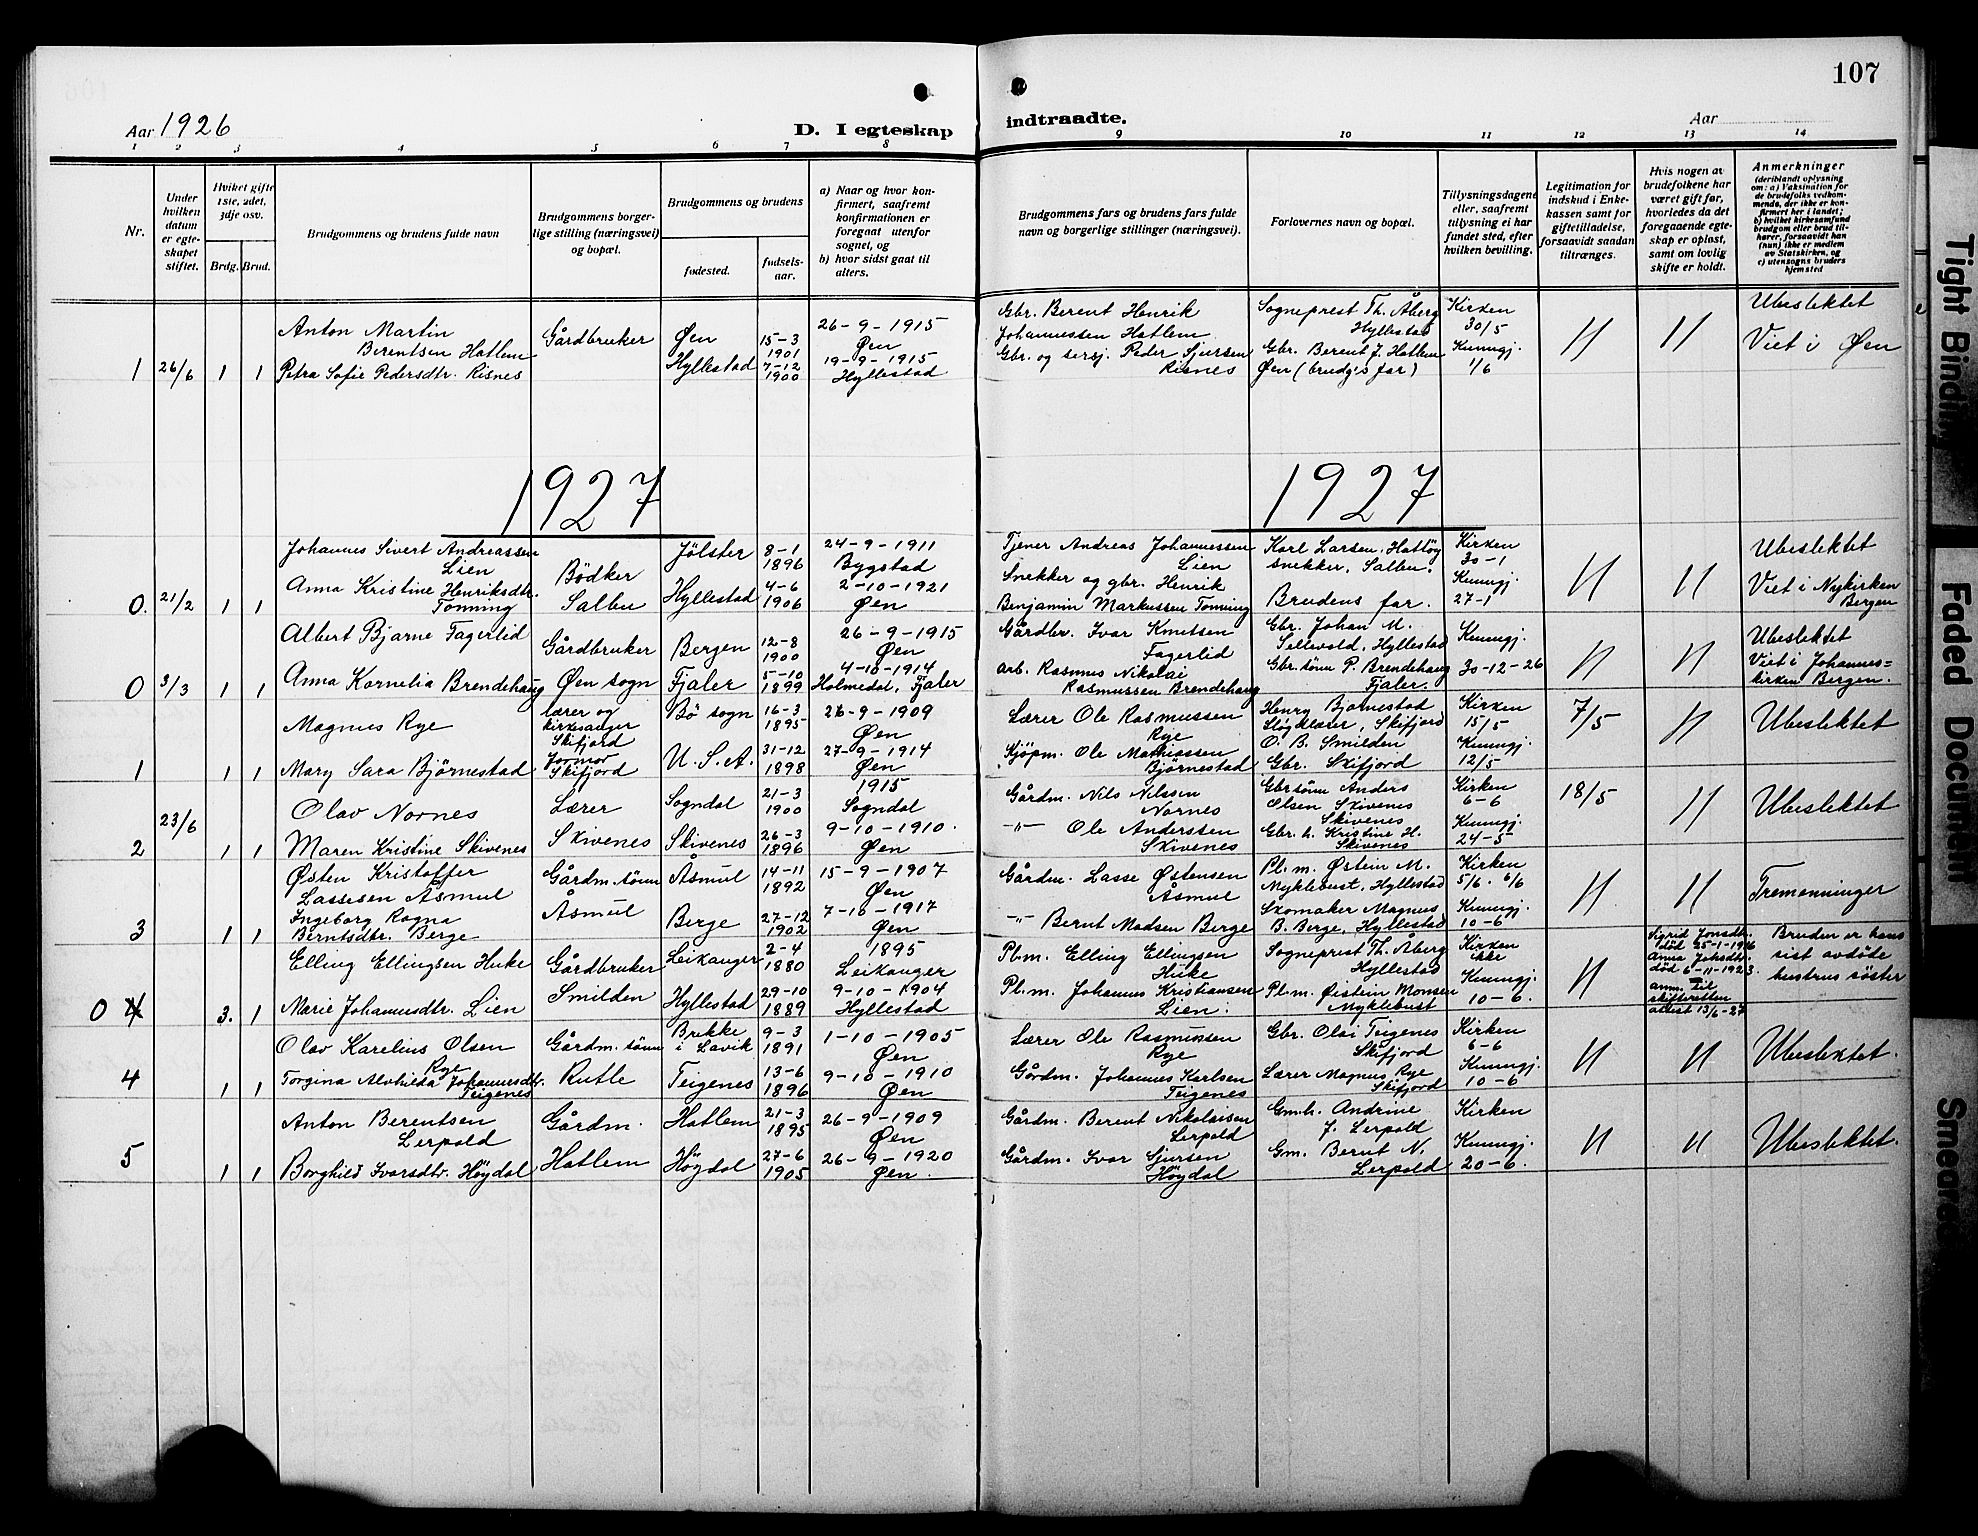 107
Aar 1926
D. I egteskap
indtraadte.
Aar
1 2 3 4 5 6 7 8 9 10 11 12 13 14
Nr.
Under hvilken datum er egteskapet stiftet.
Hvilket gifte 1ste, 2det, 3dje osv.
Brdg. Brud.
Brudgommens og brudens fulde navn
Brudgommens borgerlige stilling (næringsvei) og bopæl.
Brudgommens og brudens
fødested.
fødselsaar.
a) Naar og hvor konfirmert, saafremt konfirmationen er foregaat utenfor sognet, og
b) hvor sidst gaat til alters.
Brudgommens fars og brudens fars fulde navn og borgerlige stillinger (næringsvei).
Forlovernes navn og bopæl.
Tillysningsdagene eller, saafremt tillysning ei har fundet sted, efter hvilken bevilling.
Legitimation for indskud i Enkekassen samt for giftetilladelse, forsaavidt saadan tiltrænges.
Hvis nogen av brudefolkene har været gift før, hvorledes da det foregaaende egteskap er opløst, samt om lovlig skifte er holdt.
Anmerkninger
(deriblandt oplysning om: a) Vaksination for de brudefolks vedkommende, der ikke er konfirmert her i landet;
b) hvilket kirkesamfund brudgom eller brud tilhører, forsaavidt han (hun) ikke er medlem av Statskirken, og
c) utensogns bruders hjemsted
1 26/6 1 1
Anton Martin
Berentsen Hatlem
Petra Sofie Pedersdtr. Risnes
Gårdbruker
Øen
Hyllestad
15-3
1901
7-12
1900
26-9-1915
Øen
19-9-1915
Hyllestad
Gbr. Berent Henrik
Johannessen Hatlem
Gbr. og sersj. Peder Sjursen
Risnes
Sogneprest Th. Åberg
Hyllestad
Gbr. Berent J. Hatlem
Øen (brudg's far)
Kirken
30/5
Kunngj.
1/6
〃 〃
Ubeslektet
Viet i Øen
1927
1927
0. 21/2 1 1
Johannes Sivert Andreassen
Lien
Anna Kristine Henriksdtr.
Tonning
Bödker
Salbu
Jölster
Hyllestad
8-1
1896
4-6
1906
24-9-1911
Bygstad
2-10-1921
Øen
Tjener Andreas Johannessen
Lien
Snekker og gbr. Henrik
Benjamin Markussen Tonning
Karl Larsen, Hatlöy
snekker, Salbu.
Brudens far.
Kirken
30-1
Kunngj.
27-1
〃 〃
Ubeslektet
Viet i Nykirken
Bergen
0 3/3 1 1
Albert Bjarne Fagerlid
Anna Kornelia Brendehaug
Gårdbruker
Øen sogn
Bergen
Fjaler
12-8
1900
5-10
1899
26-9-1915
Øen
4-10-1914
Holmedal, Fjaler
Gårdbr. Ivar Knutsen
Fagerlid
arb. Rasmus Nikolai
Rasmussen Brendehaug
Gbr. Johan M.
Sellevold, Hyllestad
Gbr. sönn P. Brendehaug
Fjaler.
Kunngj.
30-12-26
〃 〃
Ubeslektet
Viet i Johannes=
kirken Bergen.
1 1 1
Magnus Rye
Mary Sara Björnestad
lærer og
kirkesanger
Skifjord
Jormor
Skifjord
Bö sogn
U.S.A.
16-3
1895
31-12
1898
26-9-1909
Øen
27-9-1914
Øen
Lærer Ole Rasmussen
Rye
Kjöpm. Ole Mathiassen
Björnestad
Henry Bjørnestad
Slöydlærer, Skifjord
O. B. Smilden
Gbr. Skifjord
Kirken
15/5
Kunngj.
12/5
7/5 〃
Ubeslektet
2 23/6 1 1
Olav Nornes
Maren Kristine Skivenes
Lærer
Skivenes
Sogndal
Skivenes
21-3
1900
26-3
1896
1915
Sogndal
9-10-1910.
Øen
Gårdm. Nils Nilssen
Nornes
-〃- Ole Anderssen
Skivenes
Gbr sönn Anders
Olsen Skivenes
Skivenes
Gbr. h. Kristine H.
Skivenes
Kirken
6-6
Kunngj.
24-5
18/5 〃
Ubeslektet
3 1 1
Østen Kristoffer
Lassesen Åsmul
Ingeborg Ragna
Berntsdtr. Berge
Gårdm. sönn
Åsmul
Åsmul
Berge
14-11
1892
27-12
1902
15-9-1907
Øen
7-10-1917
Øen
Gårdm. Lasse Østensen
Åsmul
-〃- Bernt Madsen Berge
Pl. m. Østein M.
Myklebust, Hyllestad
Skomaker Magnus
B. Berge, Hyllestad
Kirken
5/6. 6/6
Kunngj.
10-6
〃 〃
Tremenninger
0 4 3. 1
Elling Ellingsen Huke
Marie Johannesdtr. Lien
Gårdbruker
Smilden
Leikanger
Hyllestad
2-4
1880
29-10
1889
1895
Leikanger
9-10-1904
Hyllestad
Pl.m. Elling Ellingsen
Huke
Pl.m. Johannes Kristiansen
Lien.
Sogneprest Th. Åberg
Hyllestad
Pl.m. Øistein Monsen
Myklebust
Kirken
ikke
Kunngj.
10-6.
〃
Sigrid Jonsdtr.
död 25-1-1916
Anna Johsdtr.
död 6-11-1923.
anm. til
skifteretten
attest 13/6-27
Bruden er hans
sist avdöde
hustrus söster
4 1 1
Olav Karelius Olsen
Rye
Torgina Alvhilda Johannesdtr.
Teigenes
Gårdm. sönn
Rutle
Brekke
i Lavik
Teigenes
9-3
1891
13-6
1896
1-10-1905
Øen
9-10-1910
Øen
Lærer Ole Rasmussen
Rye
Gårdm. Johannes Karlsen
Teigenes
Gbr. Olai Teigenes
Skifjord
Lærer Magnus Rye
Skifjord
Kirken
6-6
Kunngj.
10-6
〃 〃
Ubeslektet.
5 1 1
Anton Berentsen
Lerpold
Borghild Ivarsdtr. Höydal
Gårdm.
Hatlem
Hatlem
Höydal
21-3
1895
27-6
1905
26-9-1909
Øen
26-9-1920
Øen.
Gårdm. Berent Nikolaisen
Lerpold
Gårdm. Ivar Sjursen
Höydal
Gm.h. Andrine
J. Lerpold
Gm. Bernt N.
Lerpold
Kirken
Kunngj.
20-6.
〃 〃
Ubeslektet.
Tight Binding
Faded Document
Smeared